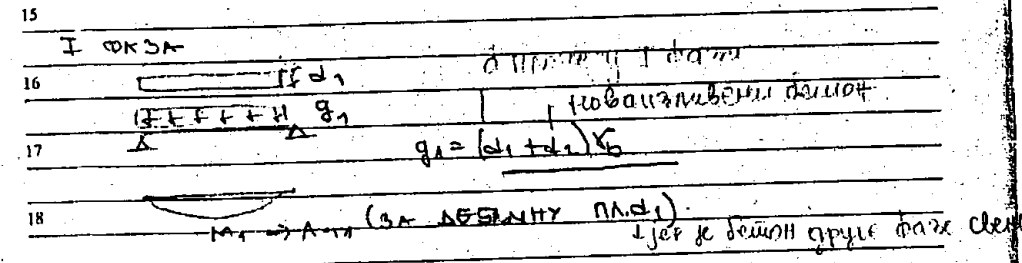 15
I ФАЗА
16
d₁
I фази
новоизливени бетон
g₁
17
g₁ = (d₁ + d₂) γb
18
M₁ ⇒ Aa₁ (ЗА ДЕБЉИНУ ПЛ. d₁).
јер је бетон друге фазе